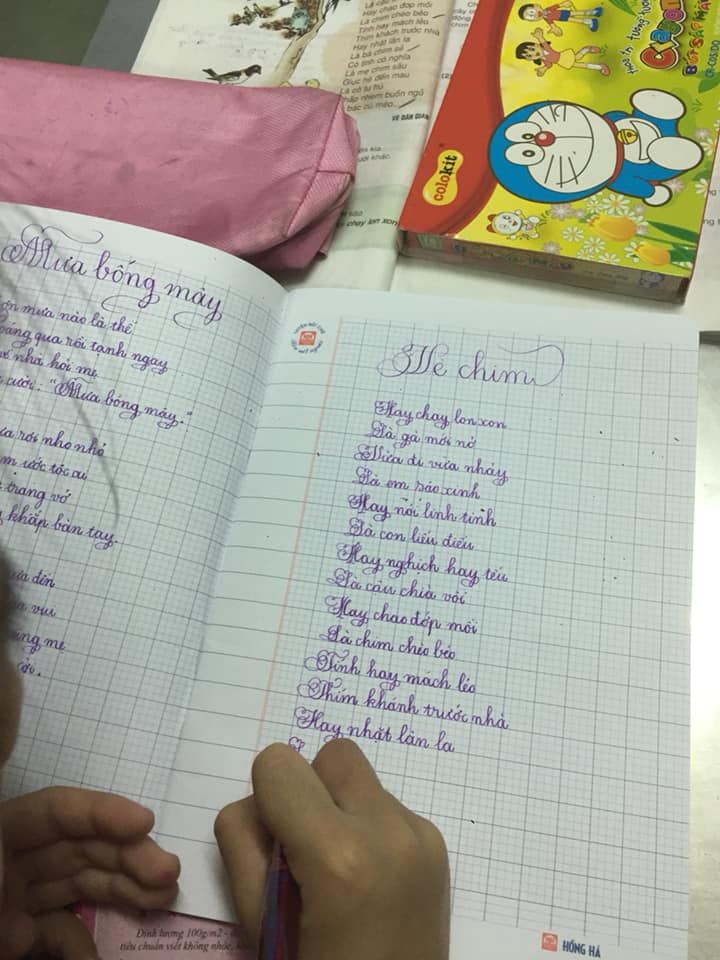 Hay chao đớp mồi
Là chim chèo bẻo
Tính hay mách lẻo
Thím khách trước nhà
Hay nhặt lân la
Là bà chim sẻ
Có tình có nghĩa
Là mẹ chim sâu
Giục hè đến mau
Là cô tu hú
nhem buồn ngủ
bác cú mèo...
VÈ DÂN GIAN
(2)
chạy lon xon
colokit
BÚT SÁP MÀU
Mưa bóng mây
mưa nào lạ thế
qua rồi tạnh ngay
nhà hỏi mẹ
cười: "Mưa bóng mây."
rơi nho nhỏ
ướt tóc ai
trang vở
khắp bàn tay.
đến
vui
mẹ
Vè chim
Hay chạy lon xon
Là gà mới nở
Vừa đi vừa nhảy
Là em sáo xinh
Hay nói linh tinh
Là con liếu điếu
Hay nghịch hay tếu
Là cậu chìa vôi
Hay chao đớp mồi
Là chim chèo bẻo
Tính hay mách lẻo
Thím khách trước nhà
Hay nhặt lân la
Định lượng 100g/m2 -
tiêu chuẩn viết không nhòe,
HỒNG HÀ